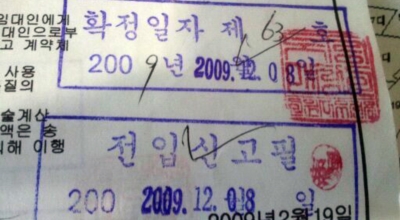 임대인에게
대인으로부
고 계약체
사용
질의
술계산
액은 송
해 이행
확정일자 제 63 호
200 9년 2009.12.08일
전입신고필
200 2009.12.08 일
2009년2월19일